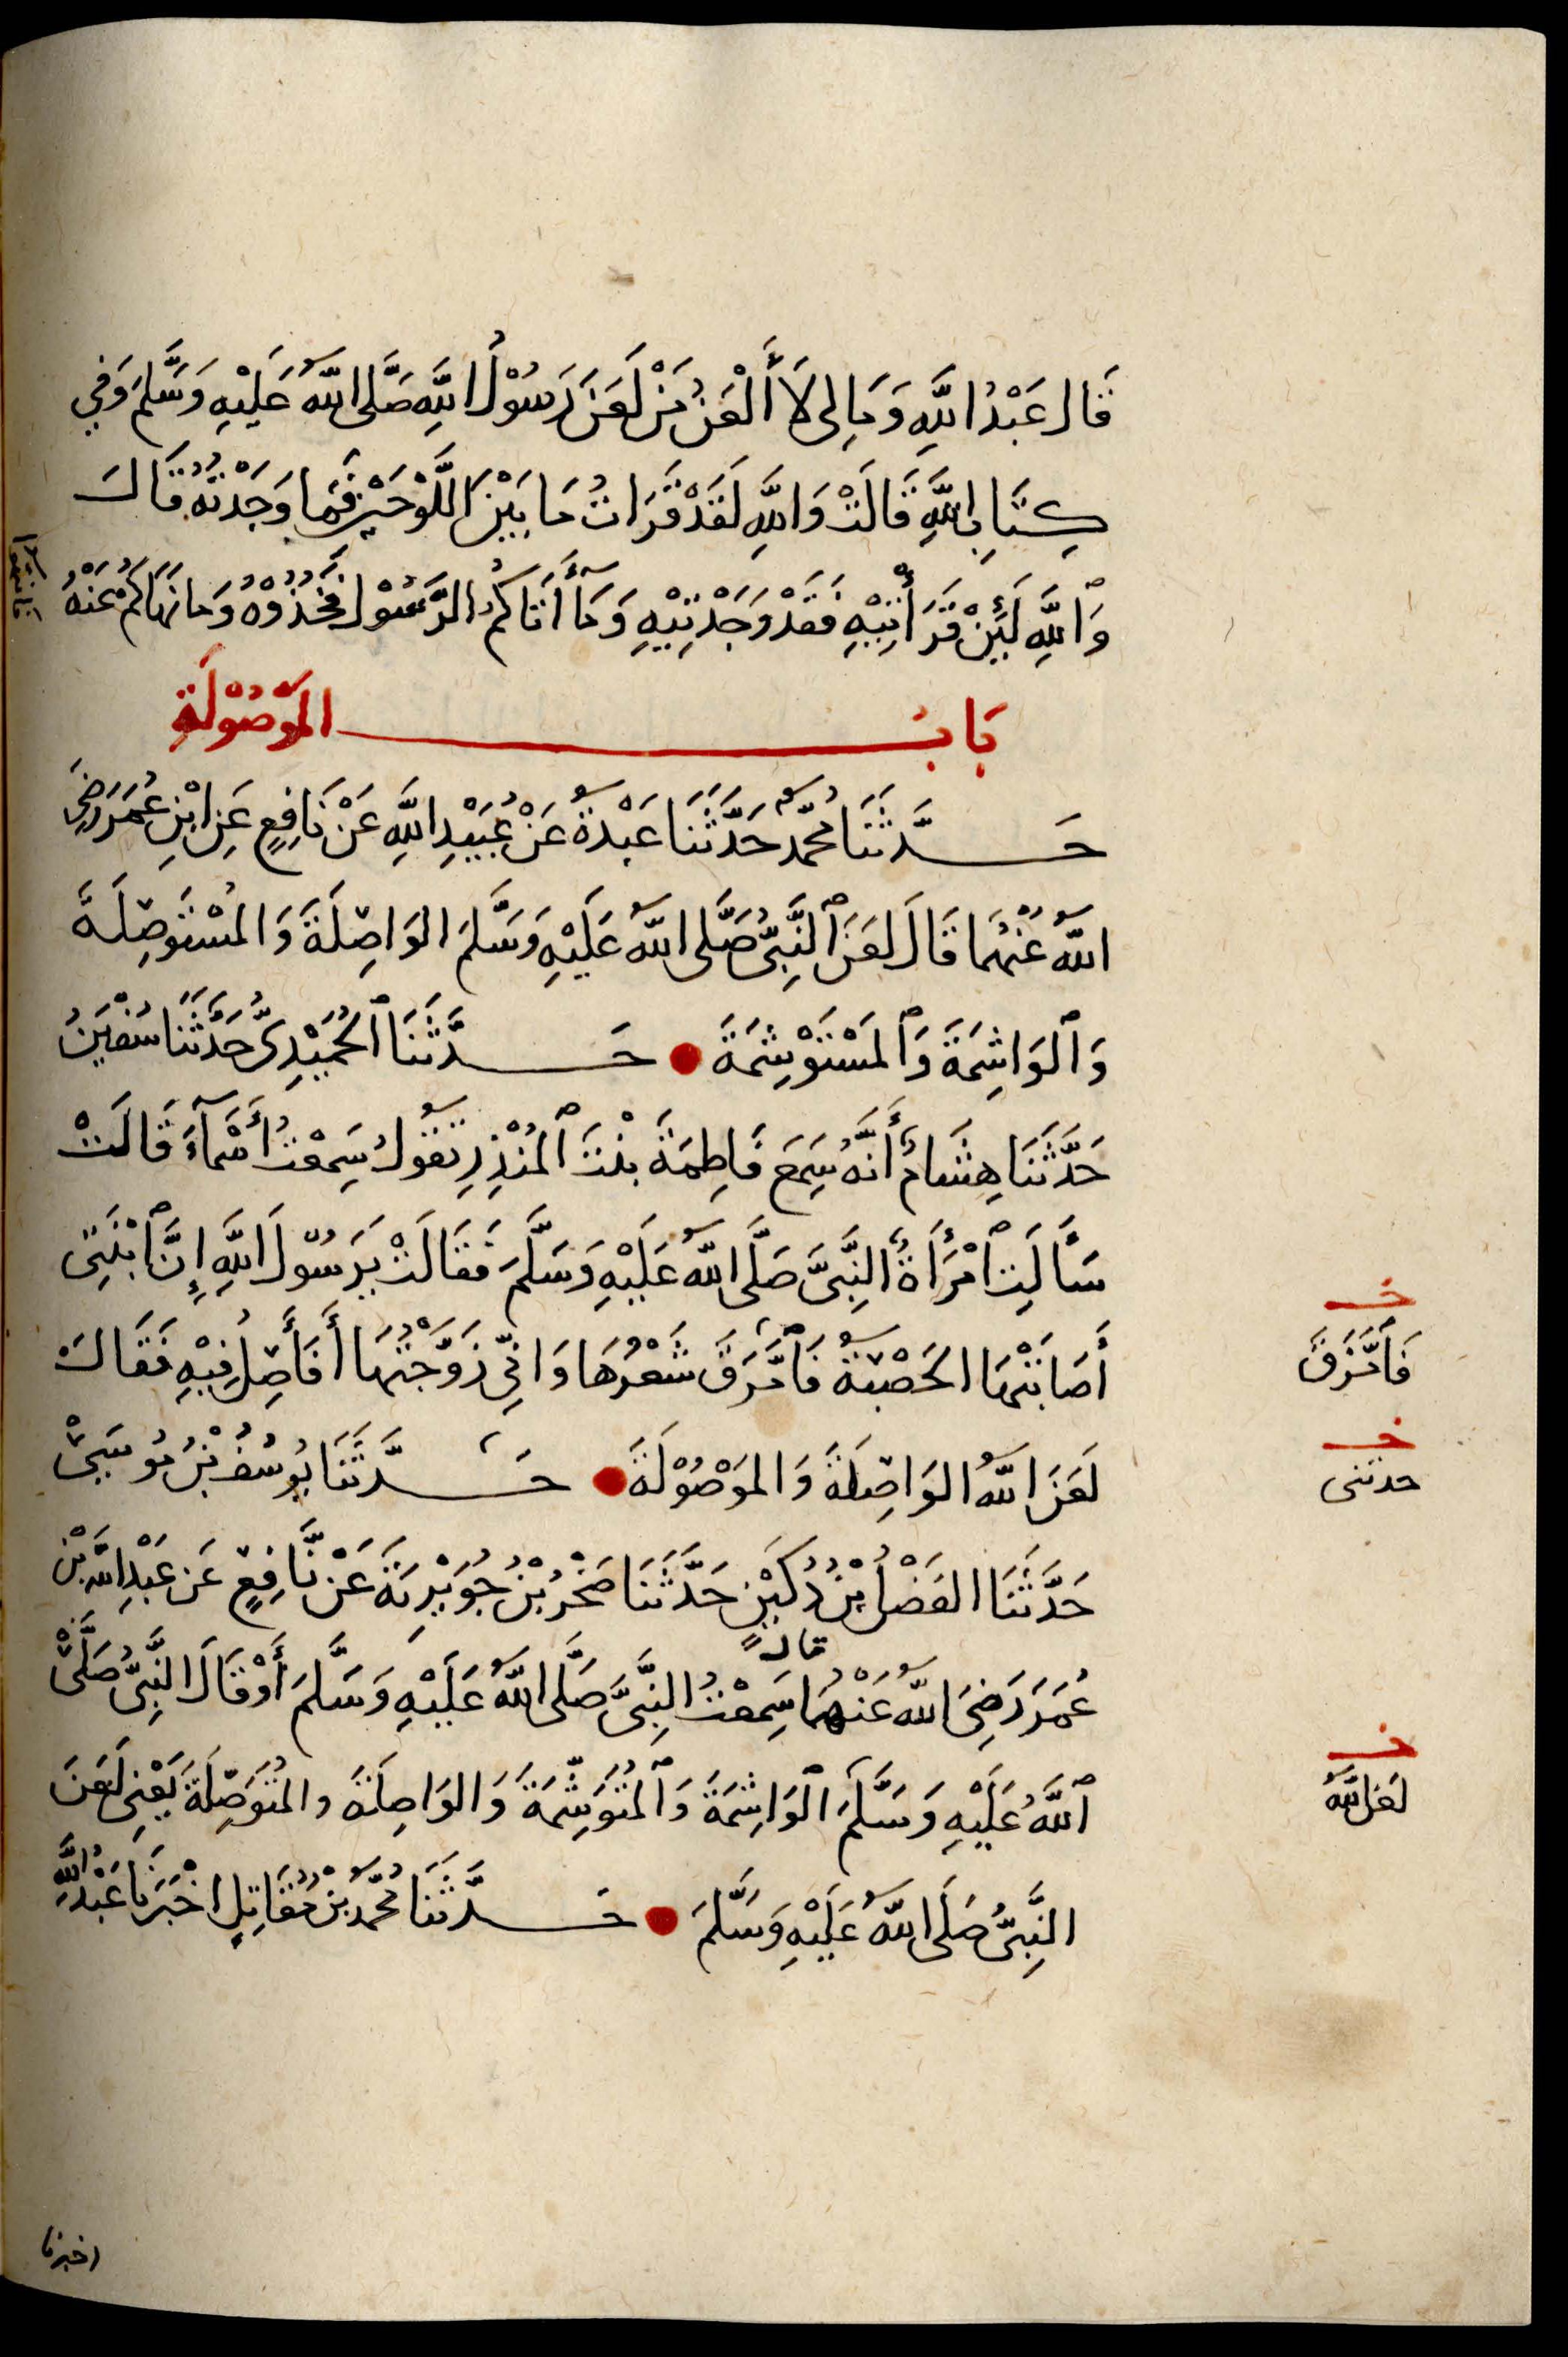 قَال عَبْدُ اللَّهِ وَمَا لِى لَا أَلْعَنُ مَنْ لَعَنَ رَسُوْلُ اللَّهِ صَلَّى اللَّهُ عَلَيْهِ وَسَلَّمَ وَفِي
كِتَابِ اللَّهِ قَالَتْ وَاللَّهِ لَقَدْ قَرَاتُ مَا بَيْنَ اللَّوْحَيْنِ فَمَا وَجَدْتُهُ قَالَ
وَٱللَّهِ لَئِنْ قَرَأْتِيْهِ فَقَدْ وَجَدْتِيْهِ وَمَآ أَتَاكُمُ الرَّسُوْل فَخُذُوْهُ وَمَا نَهَاكُمْ عَنْهُ
فانتهوا
بَابُ المَوْصُوْلَةِ
حَدَّثَنَا مُحَمَّدٌ حَدَّثَنَا عَبْدَةُ عَنْ عُبَيْدِ اللَّهِ عَنْ نَافِعٍ عَنِ ابْنِ عُمَرَ رَضِىَ
اللَّهُ عَنْهُمَا قَالَ لَعَنَ ٱلنَّبِىُّ صَلَّى اللَّهُ عَلَيْهِ وَسَلَّمَ الوَاصِلَةَ وَالمُسْتَوصِلَةَ
وَٱلوَاشِمَةَ وَٱلمُسْتَوْشِمَةَ حَدَّثَنَا ٱلحُمَيْدِىُّ حَدَّثَنَا سُفْيَنُ
حَدَّثَنَا هِشَامٌ أَنَّهُ سَمِعَ فَاطِمَةَ بِنْتَ ٱلمُنْذِرِ تَقُوْلُ سَمِعْتُ أَسْمَآءَ قَالَتْ
سَأَلَتِ ٱمْرَأَةٌ النَّبِىَّ صَلَّى اللَّهُ عَلَيْهِ وَسَلَّمَ فَقَالَتْ يَرَسُوْلَ اللَّهِ إِنَّ ٱبْنَتِى
أَصَابَتْهَا الحَصْبَةُ فَٱمَّرَقَ شَعْرُهَا وَانِّى زَوَّجْتُهَا أَفَأَصِلُ فِيْهِ فَقَالَ
خـ
فَٱمَّزَقَ
لَعَنَ اللَّهُ الوَاصِلَةَ وَالمَوْصُوْلَةَ حَدَّثَنَا يُوسُفُ بْنُ مُوسَىٰ
خـ
حدثنى
حَدَّثَنَا الفَضْلُ بْنُ دُكَيْنٍ حَدَّثَنَا صَخْرُ بْنُ جُوَيْرِيَةَ عَنْ نَّافِعٍ عَن عَبْدِ اللَّهِ بْنِ
عُمَرَ رَضِىَ اللَّهُ عَنْهُمَا قال سَمِعْتُ النَّبِىَّ صَلَّى اللَّهُ عَلَيْهِ وَسَلَّمَ أَوْ قَالَ النَّبِىُّ صَلَّى
ٱللَّهُ عَلَيْهِ وَسَلَّمَ ٱلوَاشِمَةَ وَٱلمُتَوَشِّمَةَ وَالوَاصِلَةَ والمُتَوَصِّلَةَ يَعْنِى لَعَنَ
خـ
لعن اللَّهُ
النَّبِىُّ صَلَى اللَّهُ عَلَيْهِ وَسَلَّمَ حَدَّثَنَا مُحَمَّدُ بْنُ مُقَاتِلٍ اخْبَرَنَا عَبْدُ اللَّهِ
اخبرنا